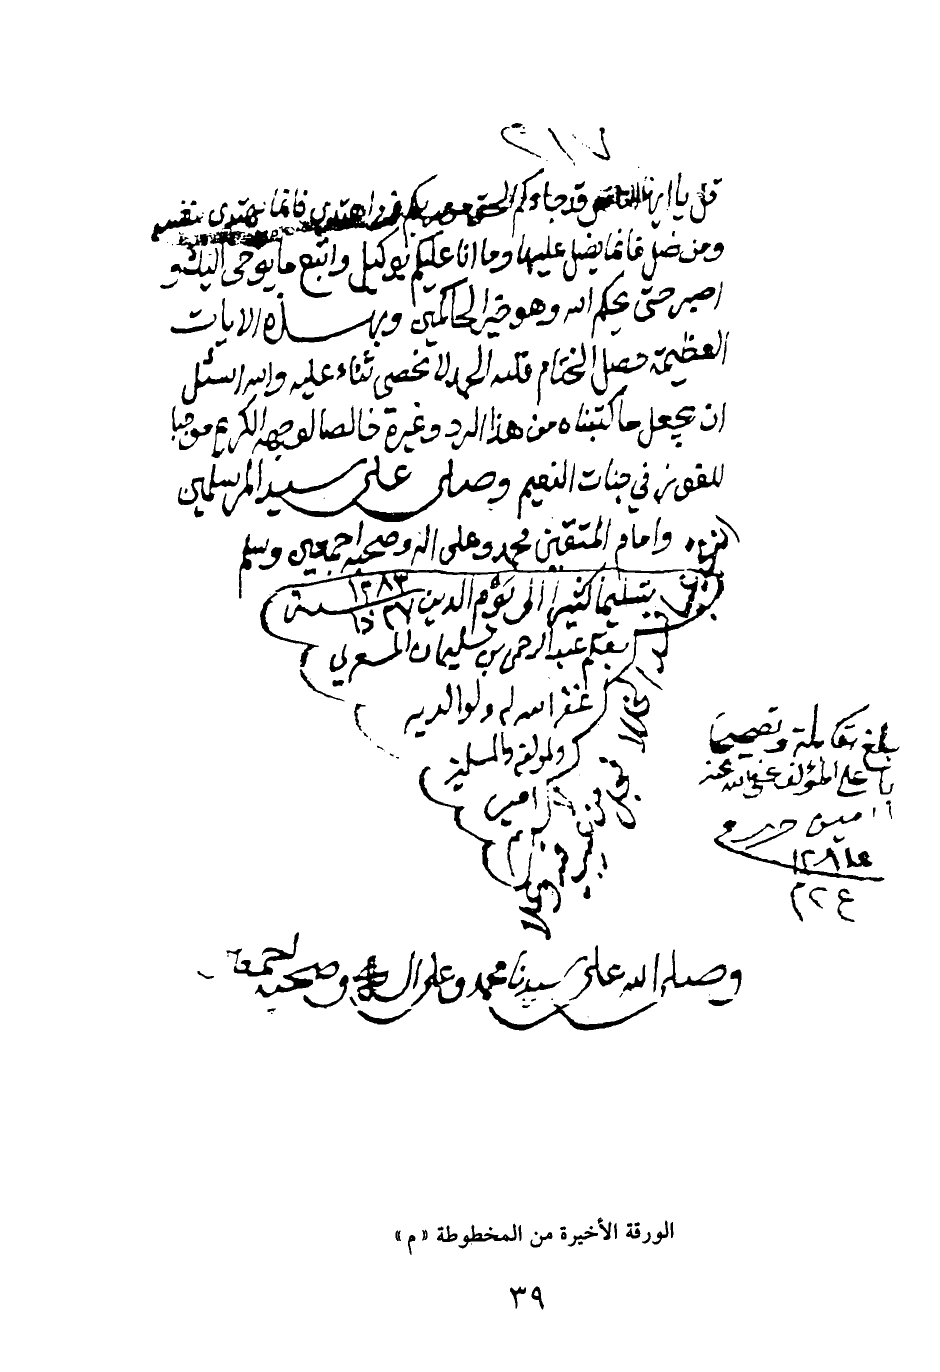 ٢١٧
قل يا ايها الناس قد جاءكم الحق من ربكم فمن اهتدى فانما يهتدى لنفسه
ومن ضل فانما يضل عليها وما انا عليكم بوكيل واتبع ما يوحى اليك و
اصبر حتى يحكم الله وهو خير الحاكمين وبهذه الايات
العظيمة حصل الختام فلله الحمد لا نحصى ثناء عليه والله اسئل
ان يجعل ما كتبناه من هذا الرد وغيره خالصا لوجهه الكريم موجبا
للفوز في جنات النعيم وصلى على سيد المرسلين
وامام المتقين محمد وعلى اله وصحبه اجمعين وسلم
تسليما كثيرا الى يوم الدين ١٢٨٣ سنة
بقلم عبد الرحمن بن سليمان
غفر الله له ولوالديه
ولمؤلفه والمسلمين
امين
م
بلغ مقابلة وتصحيحا
على المؤلف عفى الله عنه
امين
وصلى الله على سيدنا محمد وعلى ال وصحبه
الورقة الأخيرة من المخطوطة «م»
٣٩